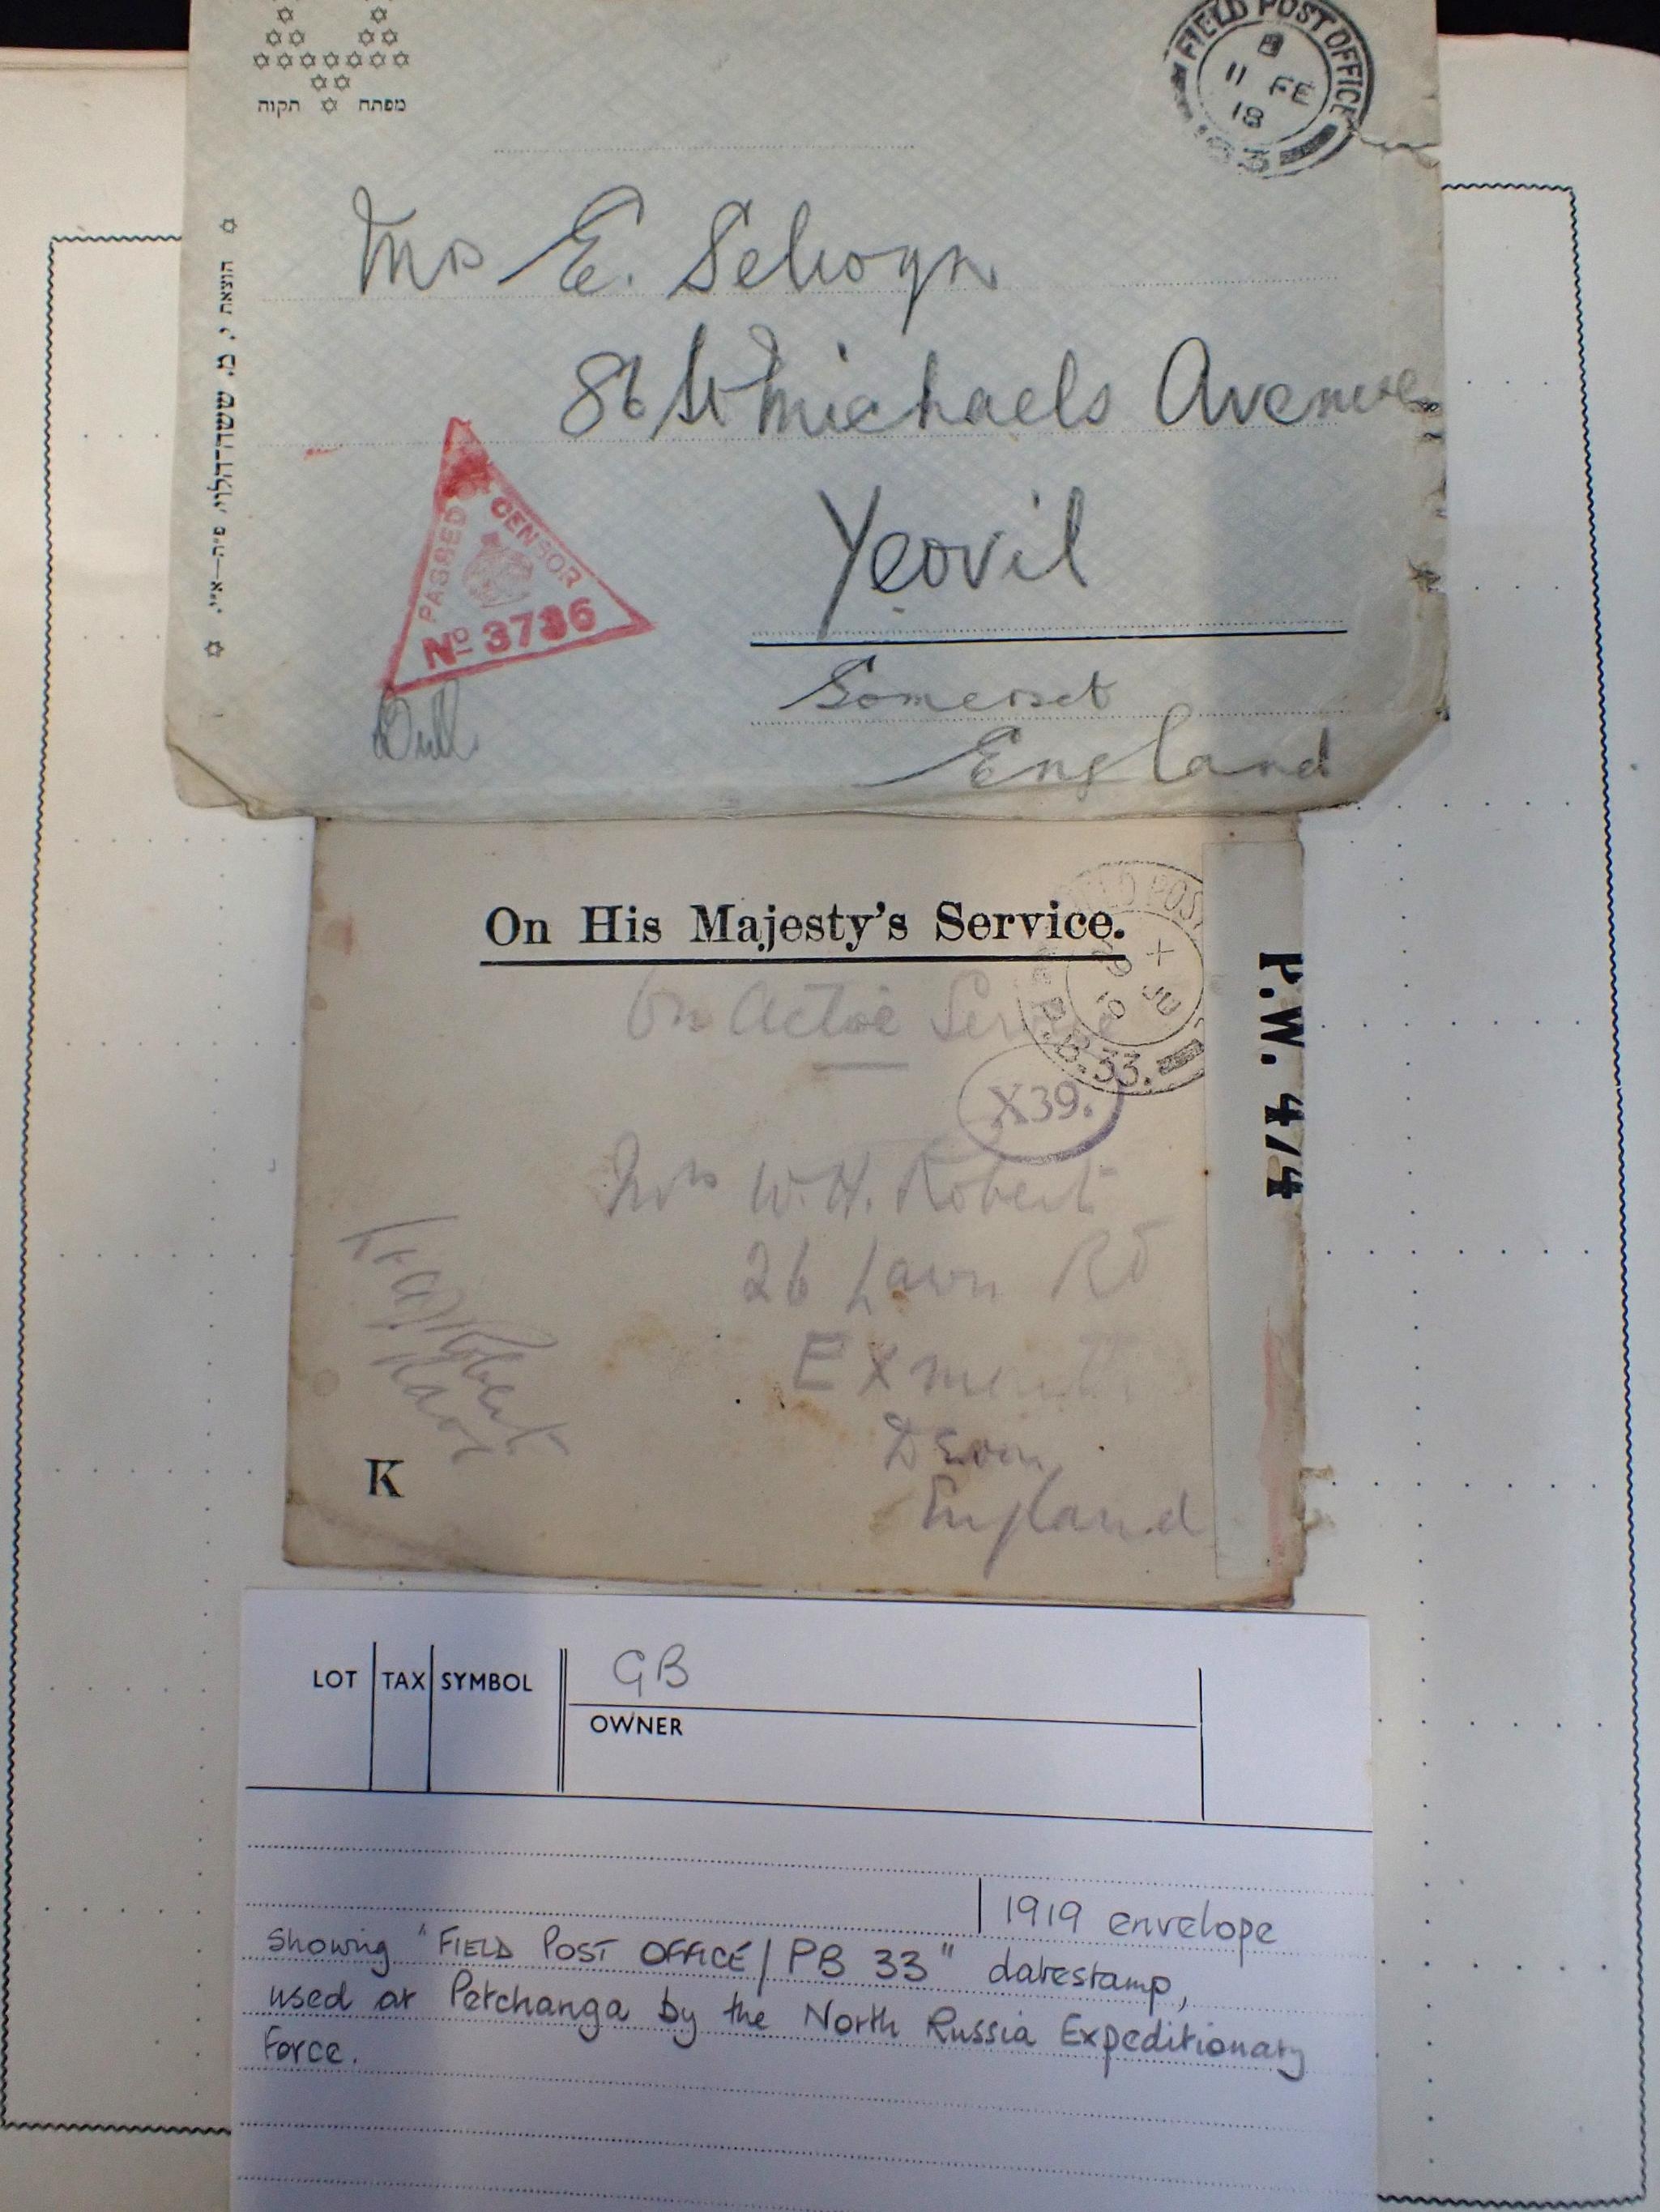 מפתח תקוה
FIELD POST OFFICE
B
11 FE
18
Mrs E.
86 St Michaels Avenue
Yeovil
Somerset
England
הוצאת י. מ.
PASSED CENSOR
Nº 3736
On His Majesty's Service.
On Active Service
FIELD POST
X
JU
19
P.B.33.
X39.
P.W. 474
Mrs W.H. Robert
26 Lawn Rd
Exmouth
Devon
England
K
LOT TAX SYMBOL
GB
OWNER
1919 envelope
showing "FIELD POST OFFICE/PB 33" datestamp,
used at Petchanga by the North Russia Expeditionary
Force.